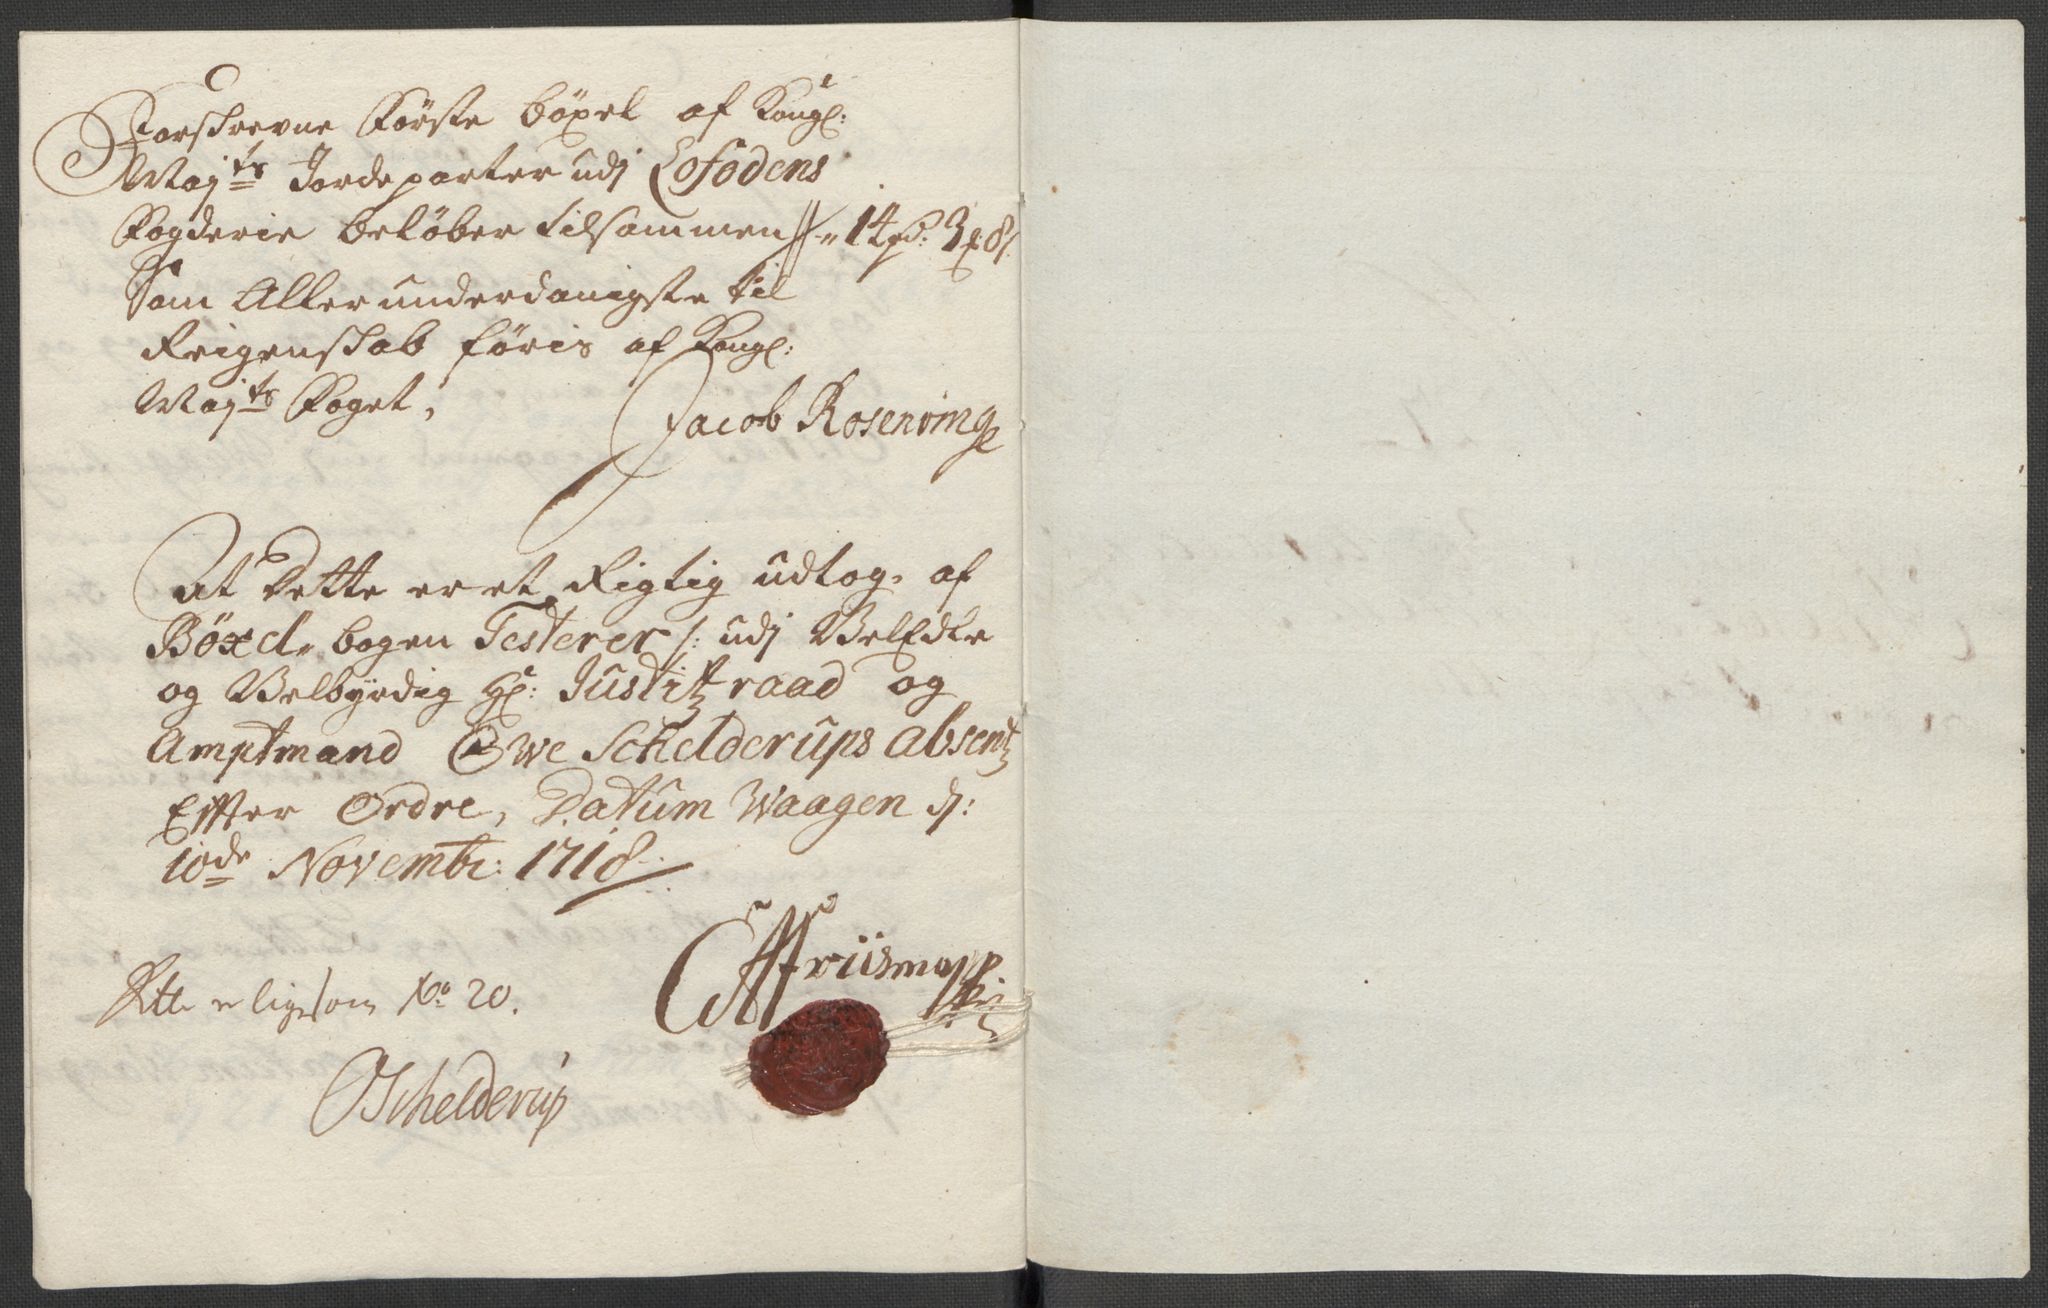 Forschrevne Første böxel af Kongl:
Maj:ts Jordeparter udj Lofodens
Fogderie beløber tilsammen // 14
Som Allerunderdanigste til
Reigenskab føris af Kongl:
Maj:ts Foget,
Jacob Rosenvinge
At Dette er et Rigtig udtog af
Böxel bogen Testerer /: udj VelEdle
og Velbyrdig Hr: Justitz raad og
Amptmand Owe Schelderups absentz
Effter Ordre, Datum Waagen d:
10de Novembr: 1718
Friismopp
Dette er ligesom No: 20.
OSchelderup